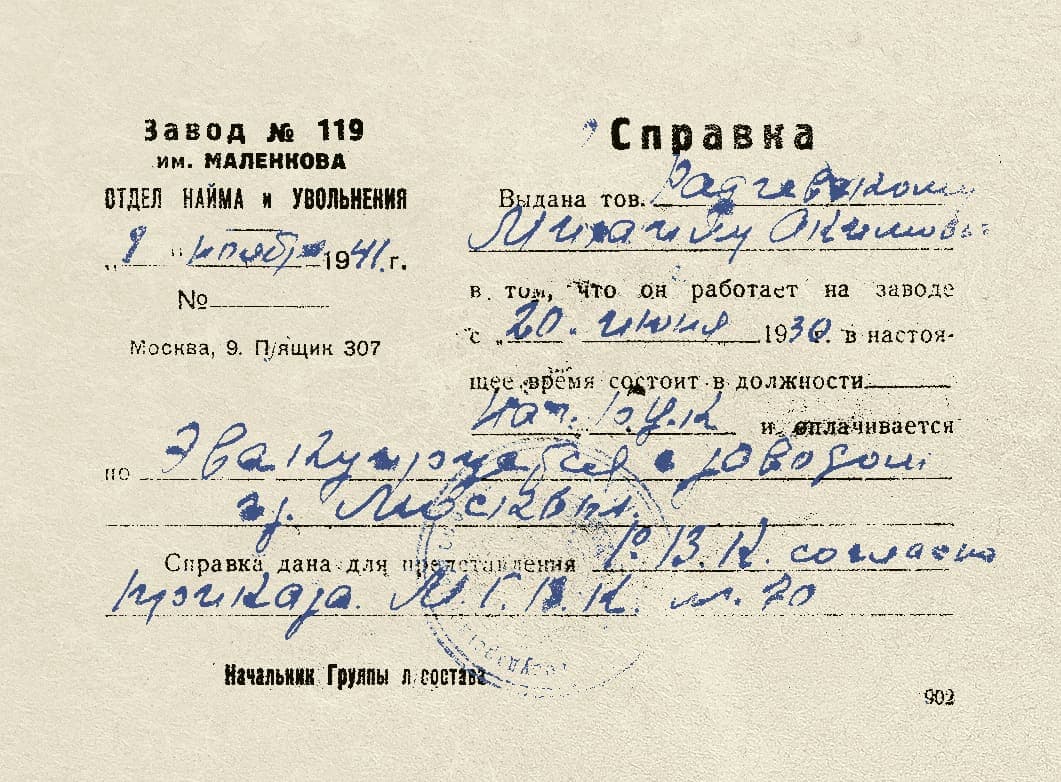 Завод № 119
им. МАЛЕНКОВА
ОТДЕЛ НАЙМА и УВОЛЬНЕНИЯ
„8 " ноября 1941 г.
№
Москва, 9. П/ящик 307
Справка
Выдана тов.
Михаилу Акимовичу
в том, что он работает на заводе
с „20 „ июня 1930 г. в настоя-
щее время состоит в должности
Нач. и оплачивается
по Эвакуируется с заводом
из Москвы.
Справка дана для представления Р.В.К. согласно
приказа М.Г.В.К. 70
Начальник Группы л состава
902